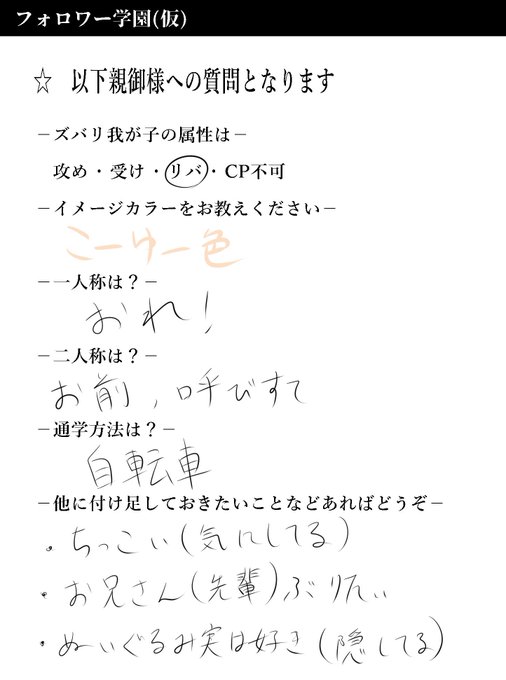 フォロワー学園(仮)
☆ 以下親御様への質問となります
－ズバリ我が子の属性は－
攻め・受け・リバ・CP不可
－イメージカラーをお教えください－
こーゆー色
－一人称は？－
おれ！
－二人称は？－
お前，呼びすて
－通学方法は？－
自転車
－他に付け足しておきたいことなどあればどうぞ－
・ちっこい(気にしてる)
・お兄さん(先輩)ぶりたい
・ぬいぐるみ実は好き(隠してる)